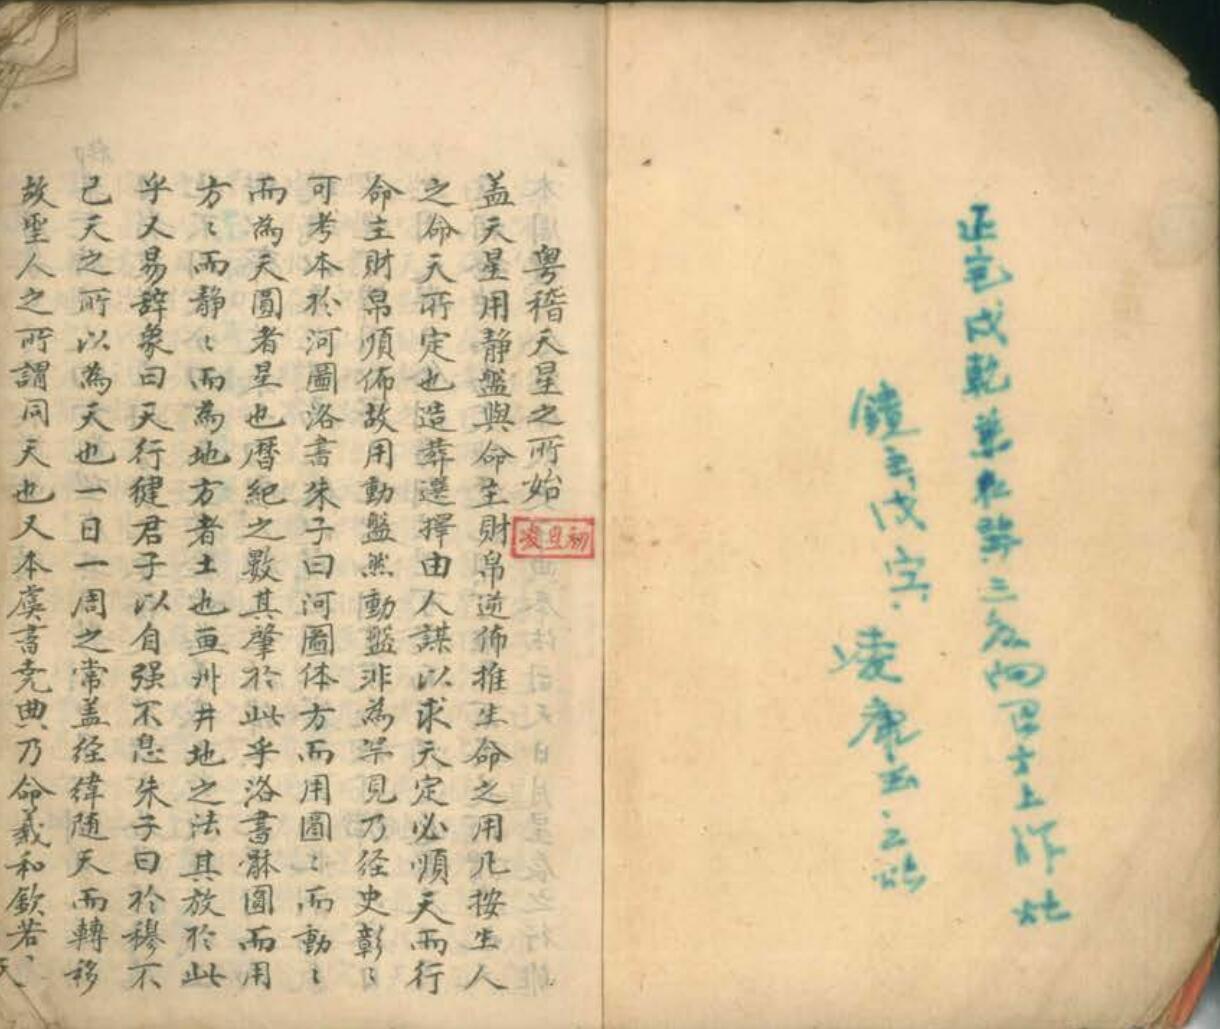 正宅戌乾兼
三 向巳方上作灶
戊字
凌
粤稽天星之所始
初旦凌
盖天星用静盤與命主財帛逆佈推生命之用凡按生人
之命天所定也造葬選擇由人謀以求天定必順天而行
命主財帛順佈故用動盤然動盤非為罕見乃径史彰〻
可考本於河圖洛書朱子曰河圖体方而用圓〻而動〻
而為天圓者星也曆紀之數其肇於此乎洛書體圓而用
方〻而静〻而為地方者土也畫州井地之法其放於此
乎又易辞象曰天行健君子以自强不息朱子曰於穆不
已天之所以為天也一日一周之常盖径緯随天而轉移
故聖人之所謂同天也又本虞書尭典乃命羲和欽若
天